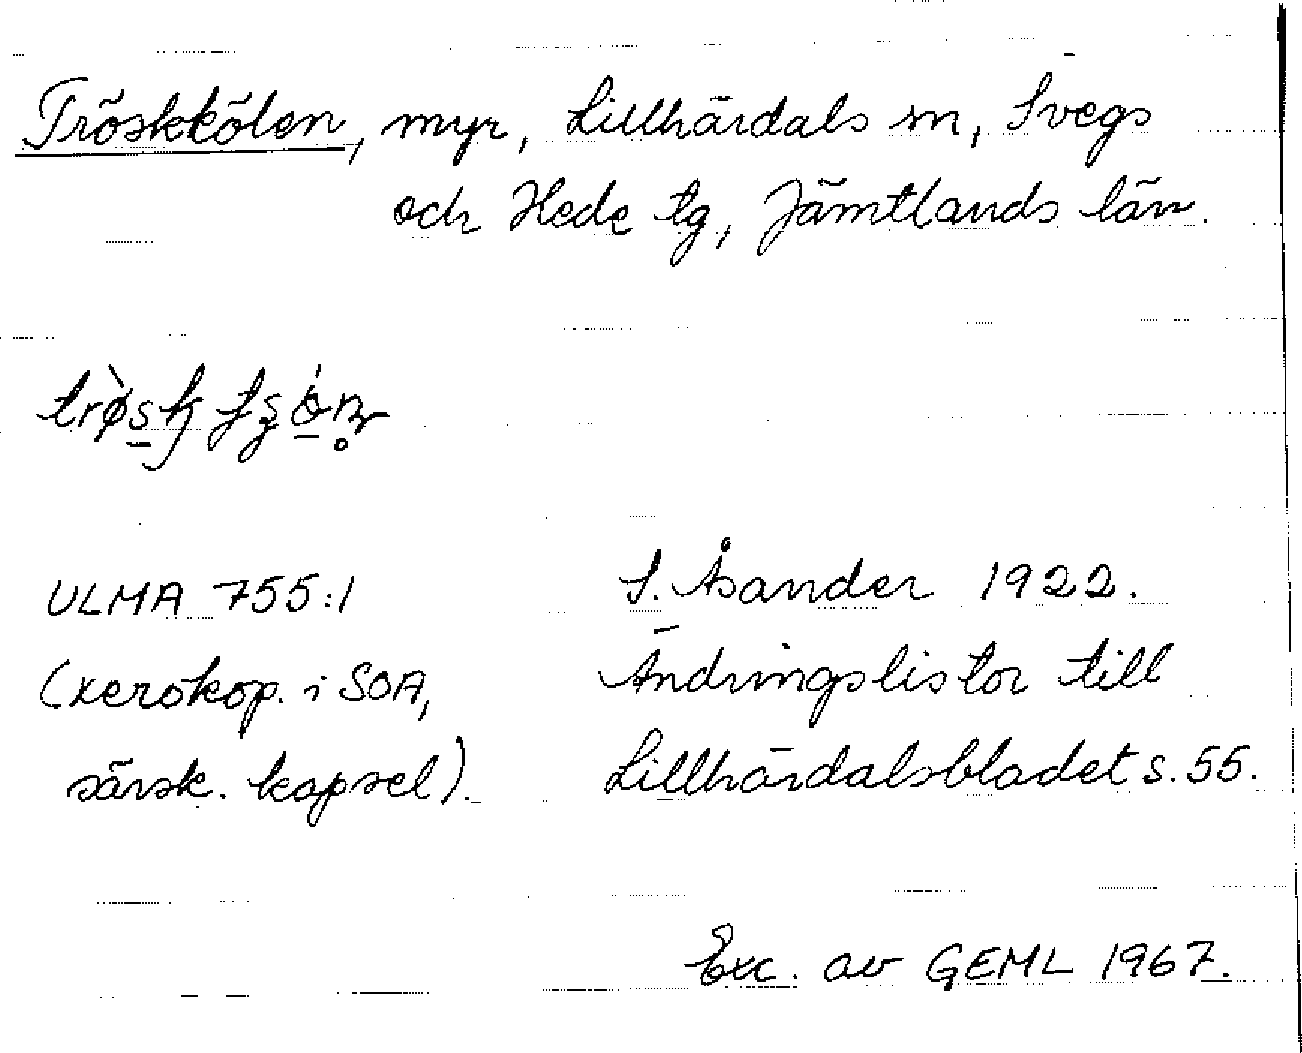 Tröskkölen, myr, Lillhärdals sn, Svegs
och Hede tg, Jämtlands län.
ULMA 755:1
S. Åsander 1922.
(xerokop. i SOA,
Ändringslistor till
särsk. kapsel).
Lillhärdalsbladet s. 55.
Exc. av GEML 1967.